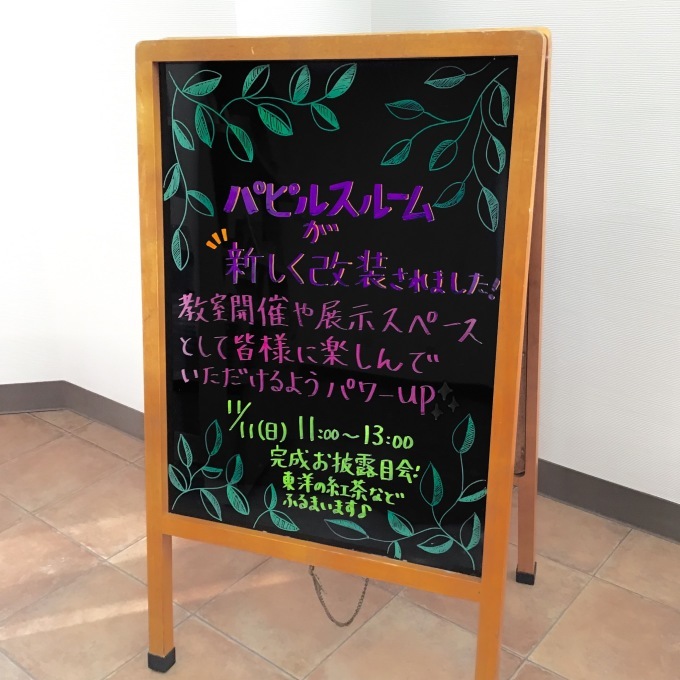 パピルスルーム
が
新しく改装されました!
教室開催や展示スペース
として皆様に楽しんで
いただけるようパワーup
11/11(日) 11:00~13:00
完成お披露目会!
東洋の紅茶など
ふるまいます♪